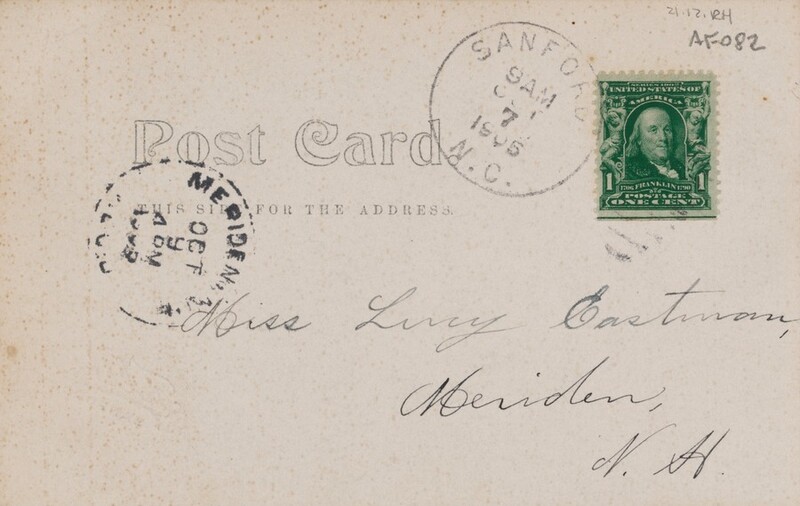 21.12.RH
AF082
SANFORD
9AM
OCT
7
N.C.
SERIES 1902
UNITED STATES OF
AMERICA
1 1
1706 FRANKLIN 1790
POSTAGE
ONE CENT
Post Card.
THIS SIDE FOR THE ADDRESS.
MERIDEN,
OCT
9
4PM
Miss Lucy Eastman,
Meriden,
N. H.